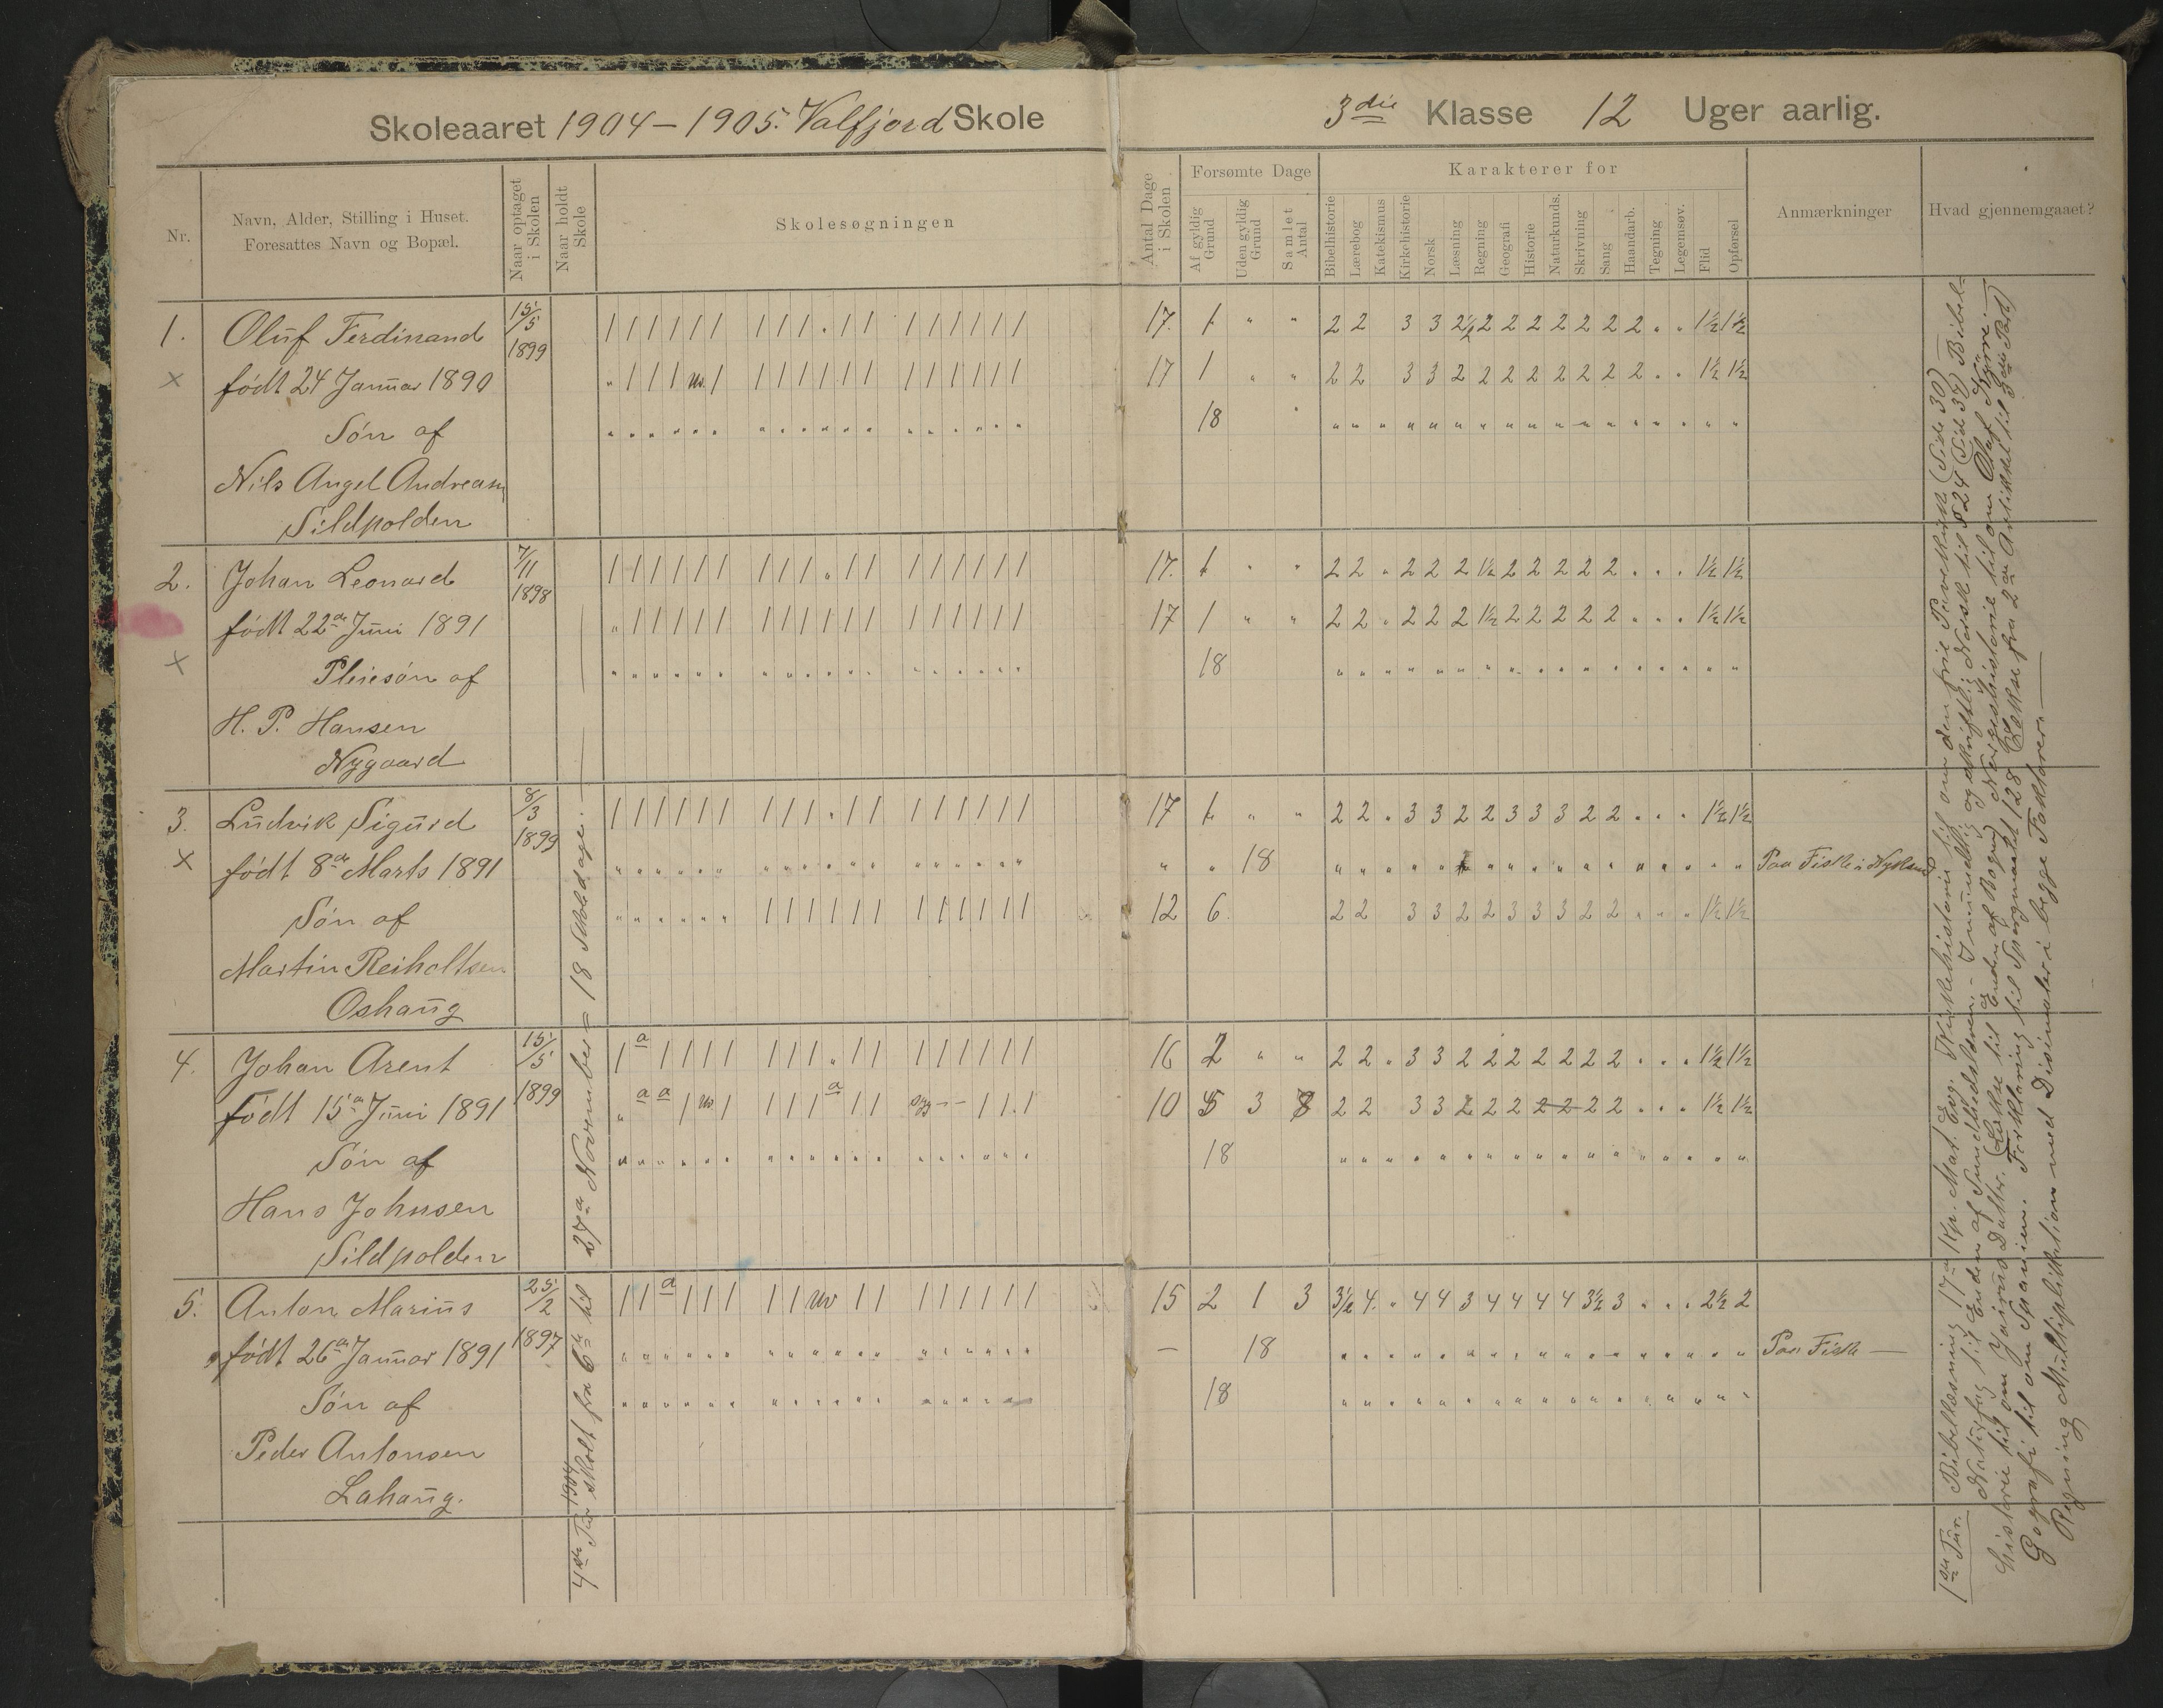 Skoleaaret 1904 – 1905. Valfjord Skole
3die Klasse 12 Uger aarlig.
Nr.
Navn, Alder, Stilling i Huset.
Foresattes Navn og Bopæl.
Naar optaget
i Skolen
Naar holdt
Skole
Skolesøgningen
Antal Dage
i Skolen
Forsømte Dage
Af gyldig
Grund
Uden gyldig
Grund
Samlet
Antal
Karakterer for
Bibelhistorie
Lærebog
Katekismus
Kirkehistorie
Norsk
Læsning
Regning
Geografi
Historie
Naturkunds.
Skrivning
Sang
Haandarb.
Tegning
Legemsøv.
Flid
Opførsel
Anmærkninger
Hvad gjennemgaaet?
1. Oluf Ferdinand 15/5 1899 / / / / / / / / / . / / / / / / / / 17. 1 " " 2 2 3 3 2½ 2 2 2 2 2 2 2 . . 1½ 1½
født 24 Januar 1890 " / / / uv. / / / / / / / / / / / / / 17 1 " " 2 2 3 3 2 2 2 2 2 2 2 2 . . 1½ 1½
Søn af 18 "
Nils Angel Andreasen
Sildpolden
2. Johan Leonard 7/11 1898 / / / / / / / / / . / / / / / / / / 17. 1 " " 2 2 . 2 2 2 1½ 2 2 2 2 2 . . . 1½ 1½
født 22de Juni 1891 " / / / / / / / / / / / / / / / / / 17 1 " " 2 2 . 2 2 2 1½ 2 2 2 2 2 . . . 1½ 1½
Pleiesøn af 18
H. P. Hansen
Nygaard
3. Ludvik Sigurd 8/3 1899 / / / / / / / / / . / / / / / / / / 17 1 " " 2 2 . 3 3 2 2 3 3 3 2 2 . . . 1½ 1½
født 8de Marts 1891 " " 18 Paa Fiske i Nyksund
Søn af / / / / / / / / / / / / 12 6. 2 2 3 3 2 2 3 3 3 2 2 . . . 1½ 1½
Martin Reiholtsen
Oshaug
4. Johan Arent 15/5 1899 / a / / / / / / / . / / / / / / / / 16 2 " " 2 2 . 3 3 2 2 2 2 2 2 2 . . . 1½ 1½
født 15de Juni 1891 " a a / uv / / / / a / / syg – – / / . / 10 5 3 8 2 2 3 3 2 2 2 2 2 2 2 . . . 1½ 1½
Søn af 18
Hans Johnsen
Sildpolden
5. Anton Marius 25/2 1897 / / a / / / / / uv / / / / / / / / 15 2 1 3 3½ 4. . 4 4 3 4 4 4 4 3½ 3 . . . 2½ 2
født 26de Januar 1891 – 18 Paa Fiske –
Søn af 18
Peder Antonsen
Lahaug.
1904
skolt fra 6te til 27de November = 18 Skoldage. –
1ste Tur. Bibellæsning 17de Kp. Mat. Evg. Kirkehistorie til om den frie Præstekirke (Side 30)
Naturfag til Enden af Sundhedslæren. – I mundtlig og skriftlig Norsk til § 24 (Side 37) Bibel-
historie til om Jairus Datter. Læste til Enden af Bogen. Norgeshistorie til om Olaf Kyrre. –
Gografi til om Spanien. Forklaring til Spørgsmaalet 128
Regning Multiplikation med Disimaler i begge Faktorer. –